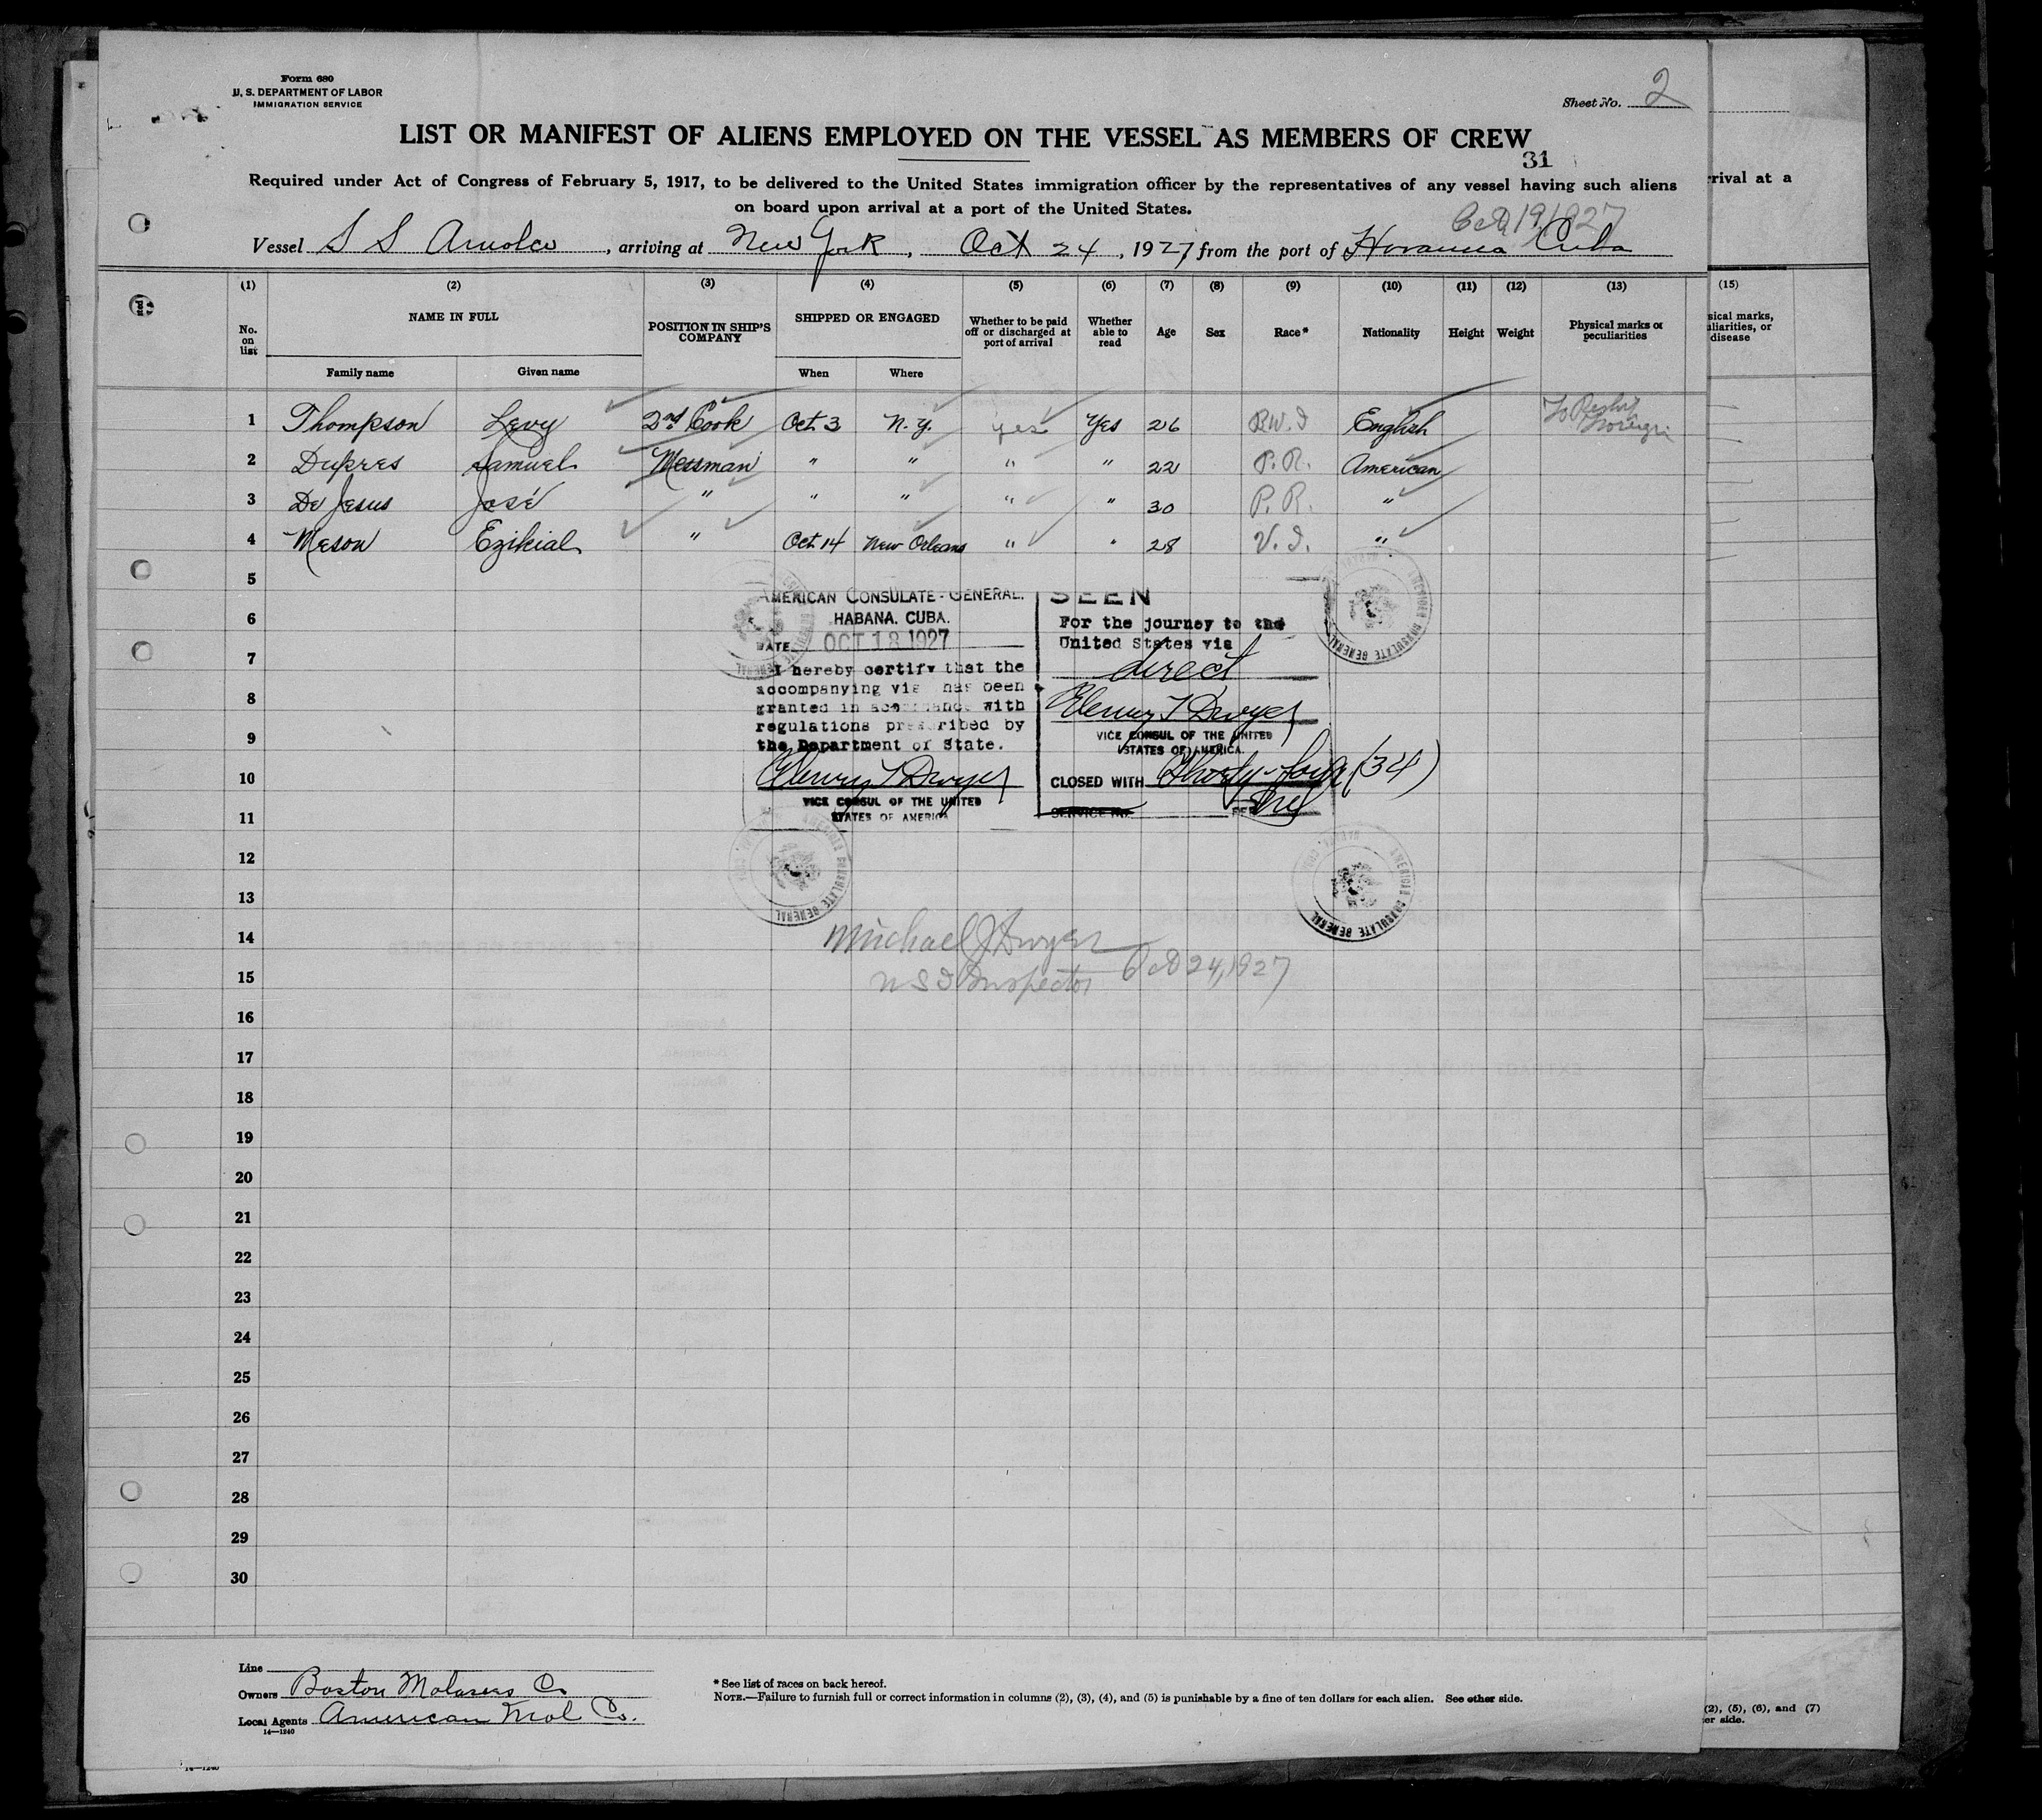 Form 680
U. S. DEPARTMENT OF LABOR
IMMIGRATION SERVICE
Sheet No. 2
LIST OR MANIFEST OF ALIENS EMPLOYED ON THE VESSEL AS MEMBERS OF CREW
31
Required under Act of Congress of February 5, 1917, to be delivered to the United States immigration officer by the representatives of any vessel having such aliens
on board upon arrival at a port of the United States.
Oct 19/1927
Vessel S S Arnolco, arriving at New York, Oct 24, 1927, from the port of Havanna Cuba
(1) (2) (3) (4) (5) (6) (7) (8) (9) (10) (11) (12) (13)
No. on list NAME IN FULL POSITION IN SHIP'S COMPANY SHIPPED OR ENGAGED Whether to be paid off or discharged at port of arrival Whether able to read Age Sex Race* Nationality Height Weight Physical marks or peculiarities
Family name Given name When Where
1 Thompson Levy 2nd Cook Oct 3 N. Y. yes Yes 26 B.W.I English To Reship Foreign
2 Dupres Samuel Messman " " " " 22 P. R. American
3 De Jesus José " " " " " 30 P. R. "
4 Meson Ezikial " Oct 14 New Orleans " " 28 V. I. "
5
6
7
8
9
10
11
12
13
14
15
16
17
18
19
20
21
22
23
24
25
26
27
28
29
30
AMERICAN CONSULATE-GENERAL.
HABANA. CUBA.
DATE OCT 18 1927
I hereby certify that the
accompanying visa has been
granted in accordance with
regulations prescribed by
the Department of State.
Henry T Dwyer
VICE CONSUL OF THE UNITED
STATES OF AMERICA
SEEN
For the journey to the
United States via
direct
Henry T Dwyer
VICE CONSUL OF THE UNITED
STATES OF AMERICA.
CLOSED WITH Thirty-four (34)
SERVICE NO. FEE
AMERICAN CONSULATE GENERAL
AMERICAN CONSULATE GENERAL
AMERICAN CONSULATE GENERAL
AMERICAN CONSULATE GENERAL
Michael J Dwyer
U S I Inspector Oct 24, 1927
Line
Owners Boston Molasses Co
Local Agents American Mol Co.
14—1240
* See list of races on back hereof.
NOTE.—Failure to furnish full or correct information in columns (2), (3), (4), and (5) is punishable by a fine of ten dollars for each alien. See other side.
rrival at a
(15)
sical marks,
uliarities, or
disease
(2), (5), (6), and (7)
er side.
14—1240